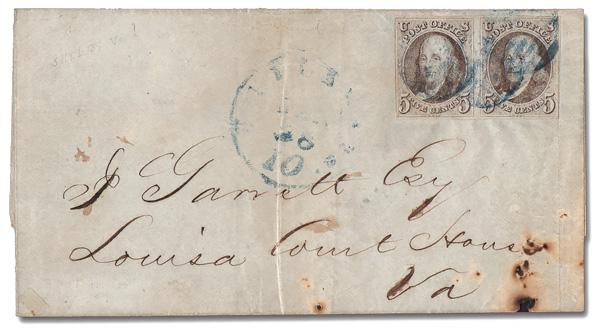 U S U S
POST OFFICE POST OFFICE
5 FIVE CENTS 5 5 FIVE CENTS 5
10
J Garrett Esq
Louisa Court House
Va